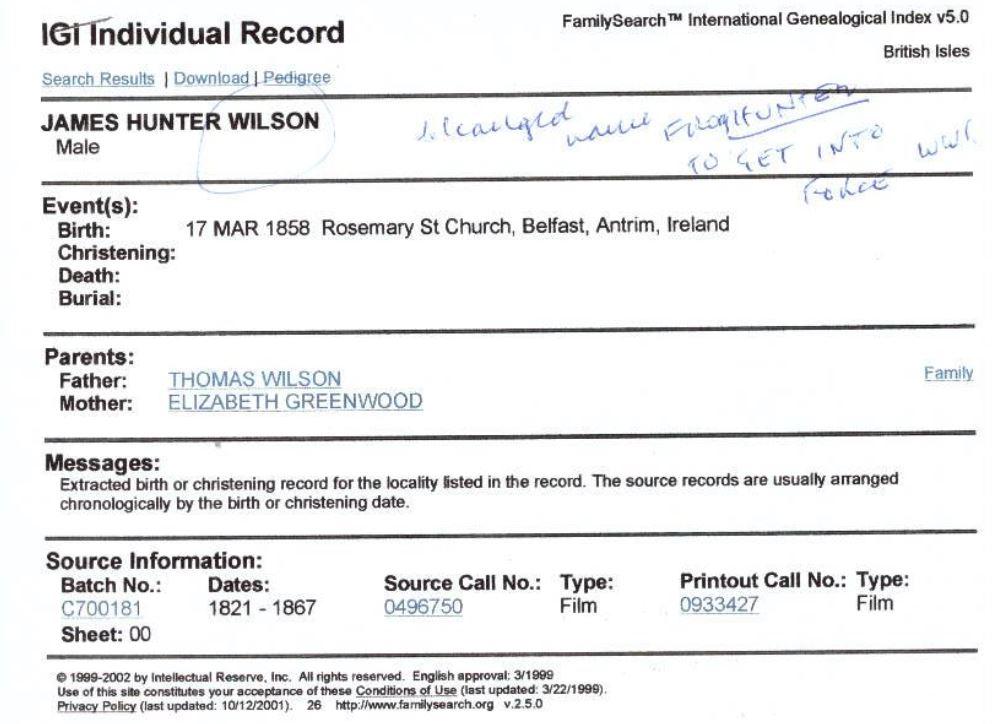 IGI Individual Record
FamilySearch™ International Genealogical Index v5.0
British Isles
Search Results | Download | Pedigree
JAMES HUNTER WILSON
Male
name
TO GET INTO WW1
FORCE
Event(s):
Birth: 17 MAR 1858 Rosemary St Church, Belfast, Antrim, Ireland
Christening:
Death:
Burial:
Parents:
Father: THOMAS WILSON
Family
Mother: ELIZABETH GREENWOOD
Messages:
Extracted birth or christening record for the locality listed in the record. The source records are usually arranged
chronologically by the birth or christening date.
Source Information:
Batch No.: Dates: Source Call No.: Type: Printout Call No.: Type:
C700181 1821 - 1867 0496750 Film 0933427 Film
Sheet: 00
© 1999-2002 by Intellectual Reserve, Inc. All rights reserved. English approval: 3/1999
Use of this site constitutes your acceptance of these Conditions of Use (last updated: 3/22/1999).
Privacy Policy (last updated: 10/12/2001). 26 http://www.familysearch.org v.2.5.0